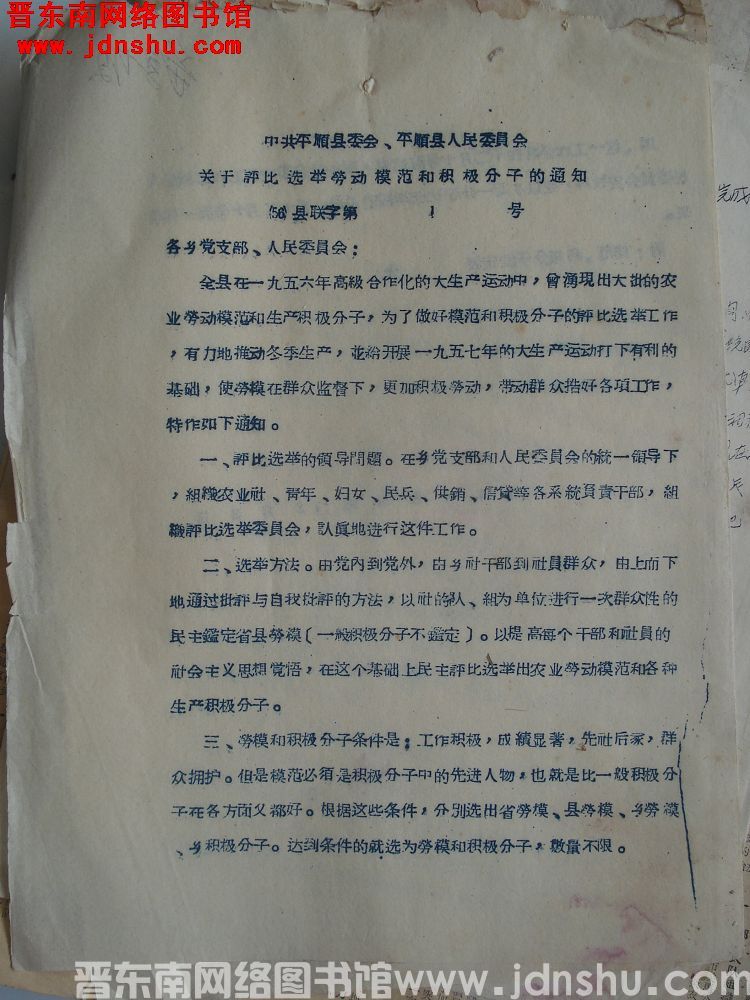 晋东南网络图书馆
www.jdnshu.com
中共平順县委会、平順县人民委員会
关于評比选举勞动模范和积极分子的通知
(56)县联字第 1 号
各乡党支部、人民委員会：
全县在一九五六年高級合作化的大生产运动中，曾湧現出大批的农
业勞动模范和生产积极分子，为了做好模范和积极分子的評比选举工作
，有力地推动冬季生产，並給开展一九五七年的大生产运动打下有利的
基础，使勞模在群众监督下，更加积极勞动，带动群众搞好各項工作，
特作如下通知。
一、評比选举的領导問題。在乡党支部和人民委員会的統一領导下
，組織农业社、青年、妇女、民兵、供銷、信貸等各系統負責干部，組
織評比选举委員会，認眞地进行这件工作。
二、选举方法。由党內到党外，由乡社干部到社員群众，由上而下
地通过批評与自我批評的方法，以社的队、組为单位进行一次群众性的
民主鑑定省县勞模〔一般积极分子不鑑定〕。以提高每个干部和社員的
社会主义思想覚悟，在这个基础上民主評比选举出农业勞动模范和各种
生产积极分子。
三、勞模和积极分子条件是：工作积极，成績显著，先社后家，群
众拥护。但是模范必須是积极分子中的先进人物，也就是比一般积极分
子在各方面又都好。根据这些条件，分别选出省勞模、县勞模、乡勞模
、乡积极分子。达到条件的就选为勞模和积极分子，数量不限。
完成
晋东南网络图书馆www.jdnshu.com